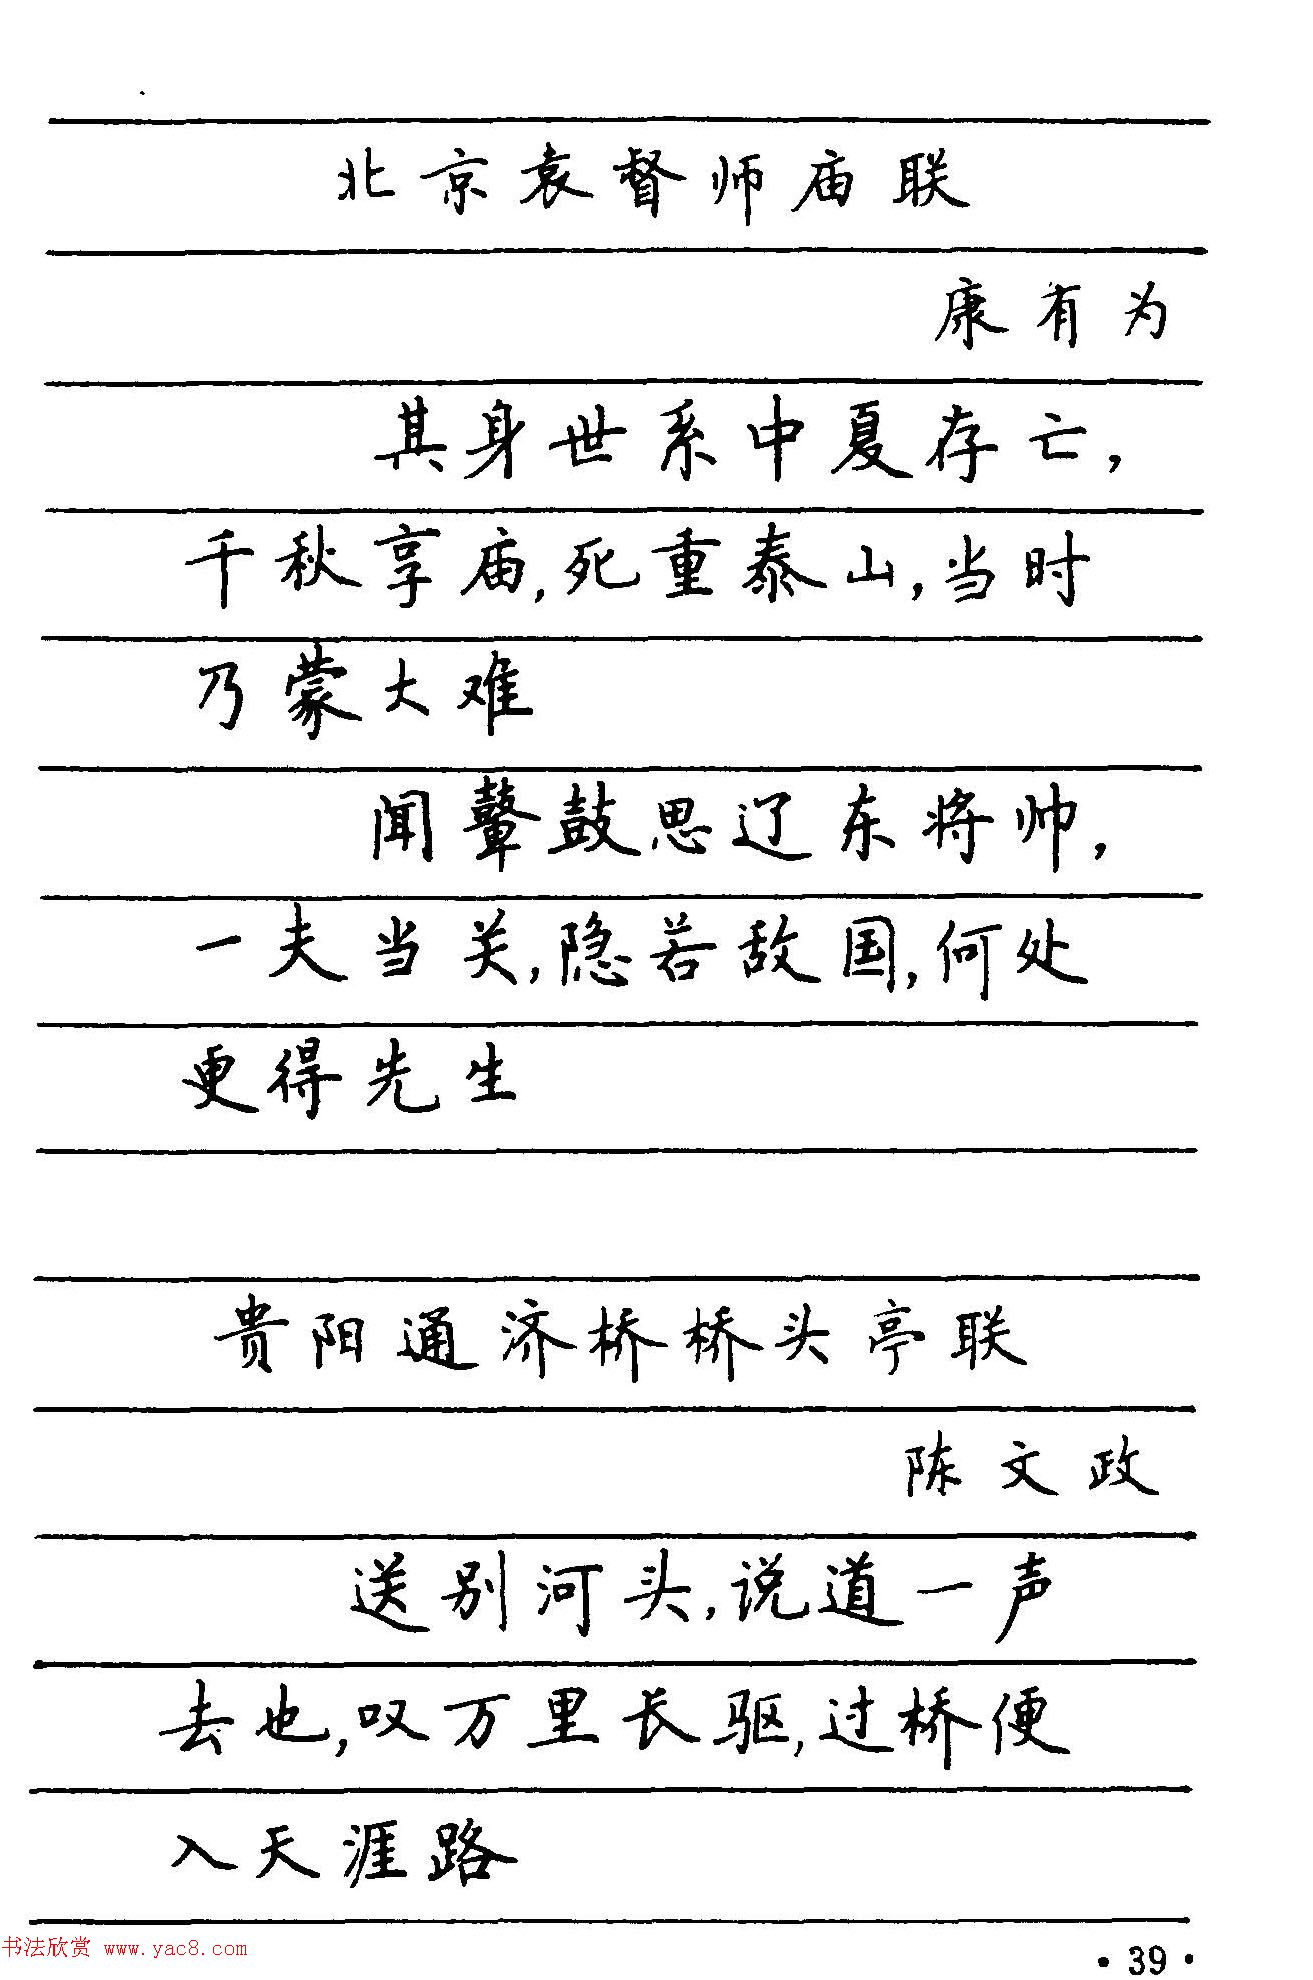 北京袁督师庙联
康有为
其身世系中夏存亡，
千秋享庙，死重泰山，当时
乃蒙大难
闻鼙鼓思辽东将帅，
一夫当关，隐若敌国，何处
更得先生
贵阳通济桥桥头亭联
陈文政
送别河头，说道一声
去也，叹万里长驱，过桥便
入天涯路
书法欣赏 www.yac8.com
·39·